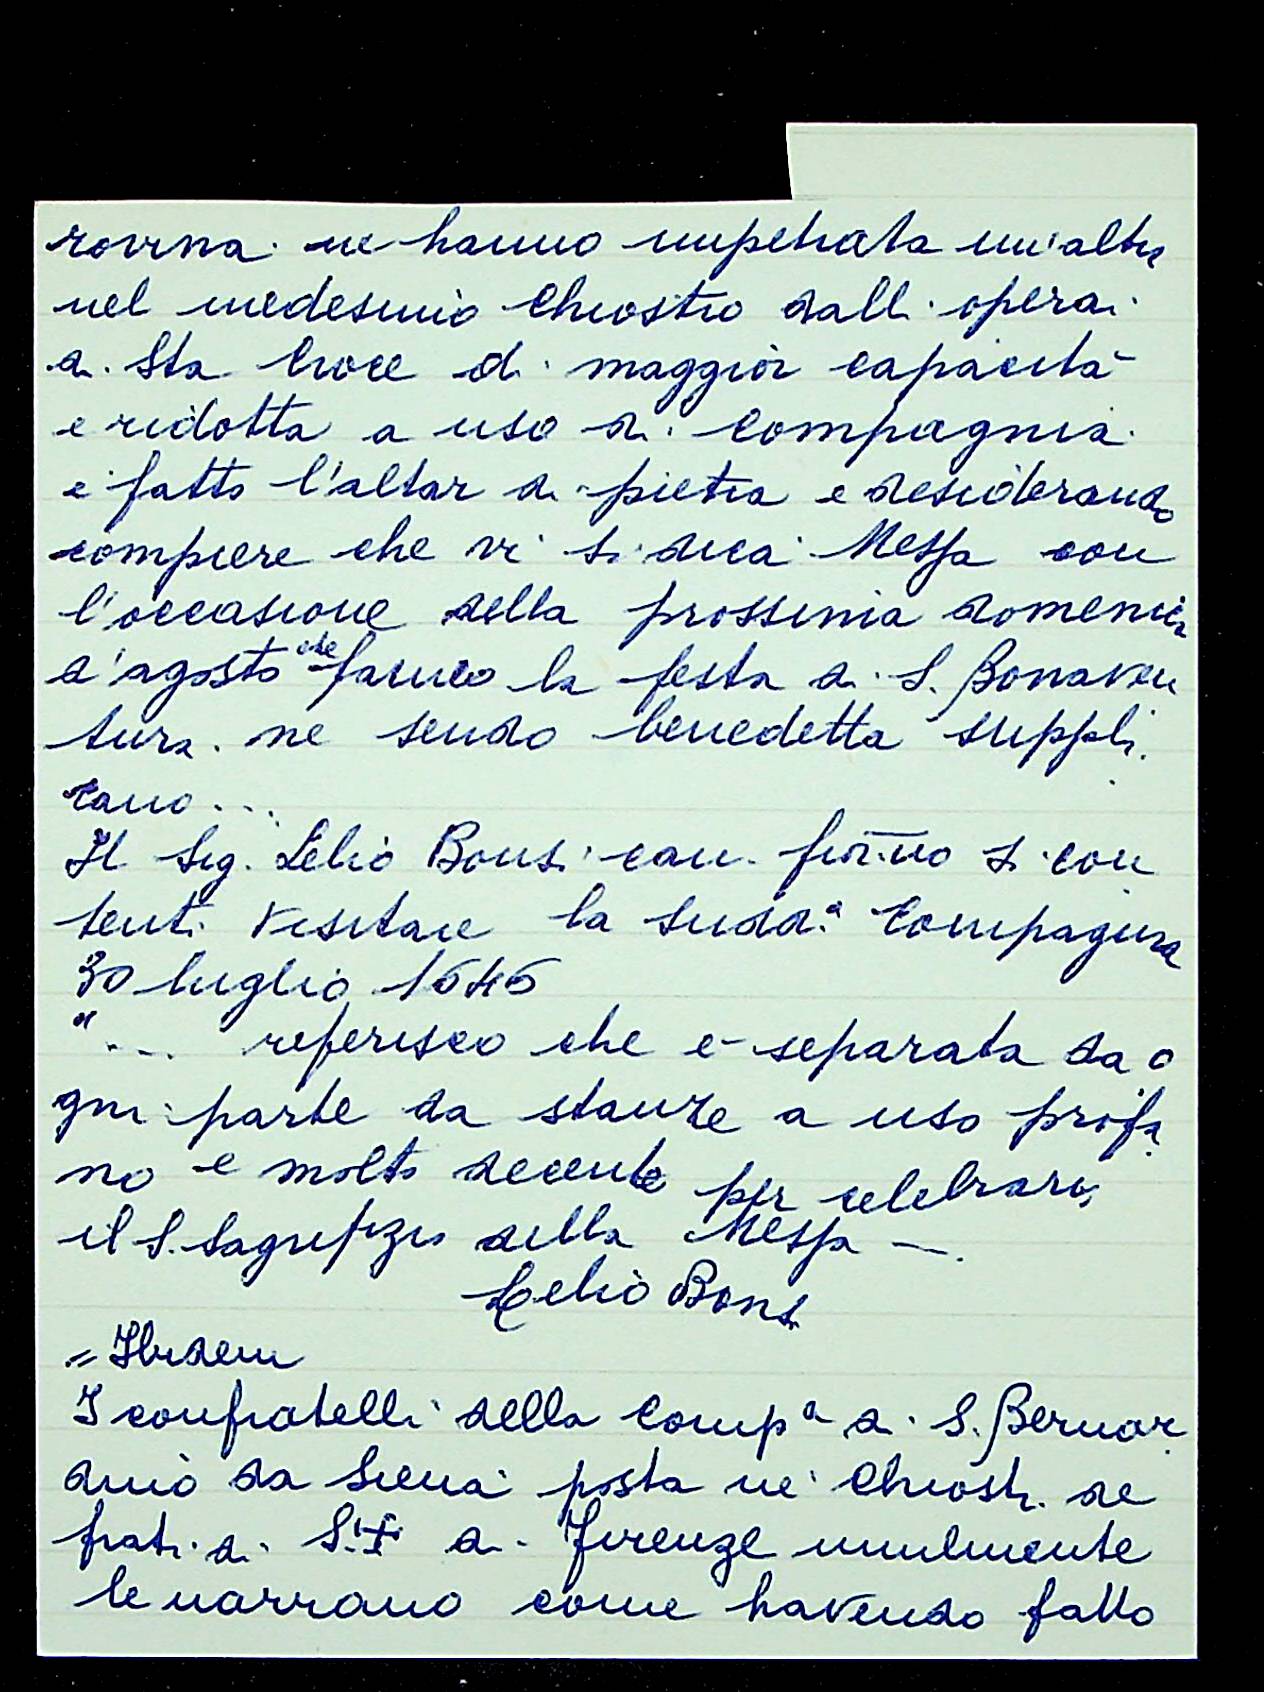 rovina ne hanno impetrata un'altra
nel medesimio Chiostro dalli operai
di Sta Croce di maggior capacità
e ridotta a uso di compagnia
e fatto l'altar di pietra e desiderando
compiere che vi si dica Messa con
l'occasione della prossima domenica
d'agosto che fanno la festa di S. Bonaven
tura. ne sendo benedetta suppli
cano ...
Il Sig. Lelio Bonsi can. fior.no si con
tenti visitare la sudd.a Compagnia
30 luglio 1646
"... referisco che è separata da o
gni parte da stanze a uso profa
no e molto decente per celebrarvi
il S. Sagrifizio della Messa —.
Lelio Bonsi
= Ibidem
I confratelli della Comp.a di S. Bernar
dino da Siena posta ne' Chiostri de
frati di S. † di Firenze umilmente
le narrano come havendo fatto